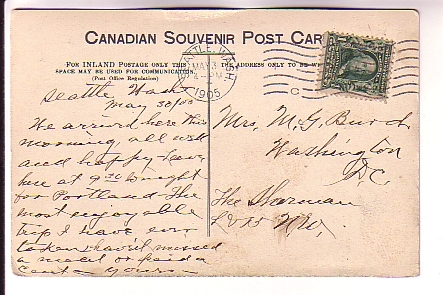 CANADIAN SOUVENIR POST CARD
FOR INLAND POSTAGE ONLY THIS THE ADDRESS ONLY TO BE
SPACE MAY BE USED FOR COMMUNICATION.
(Post Office Regulation)
SEATTLE, WASH.
MAY 3
4-PM
1905
Seattle Wash
May 30/05
We arrived here this
morning, all well
and happy leave
here at 9 30 tonight
for Portland The
most enjoyable
trip I have ever
taken havi't missed
a meal or paid a
cent Yours
Mrs. M. G. Burch
Washington
D.C.
The Sherman
L & 15 NW.